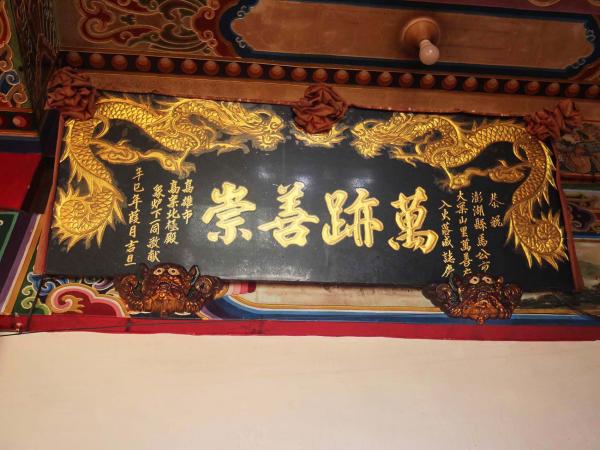 恭祝
澎湖縣馬公市
大案山里萬善宮
入火落成誌慶
萬跡善崇
高雄市
高案北極殿
眾炉下同敬献
辛巳年葭月吉旦